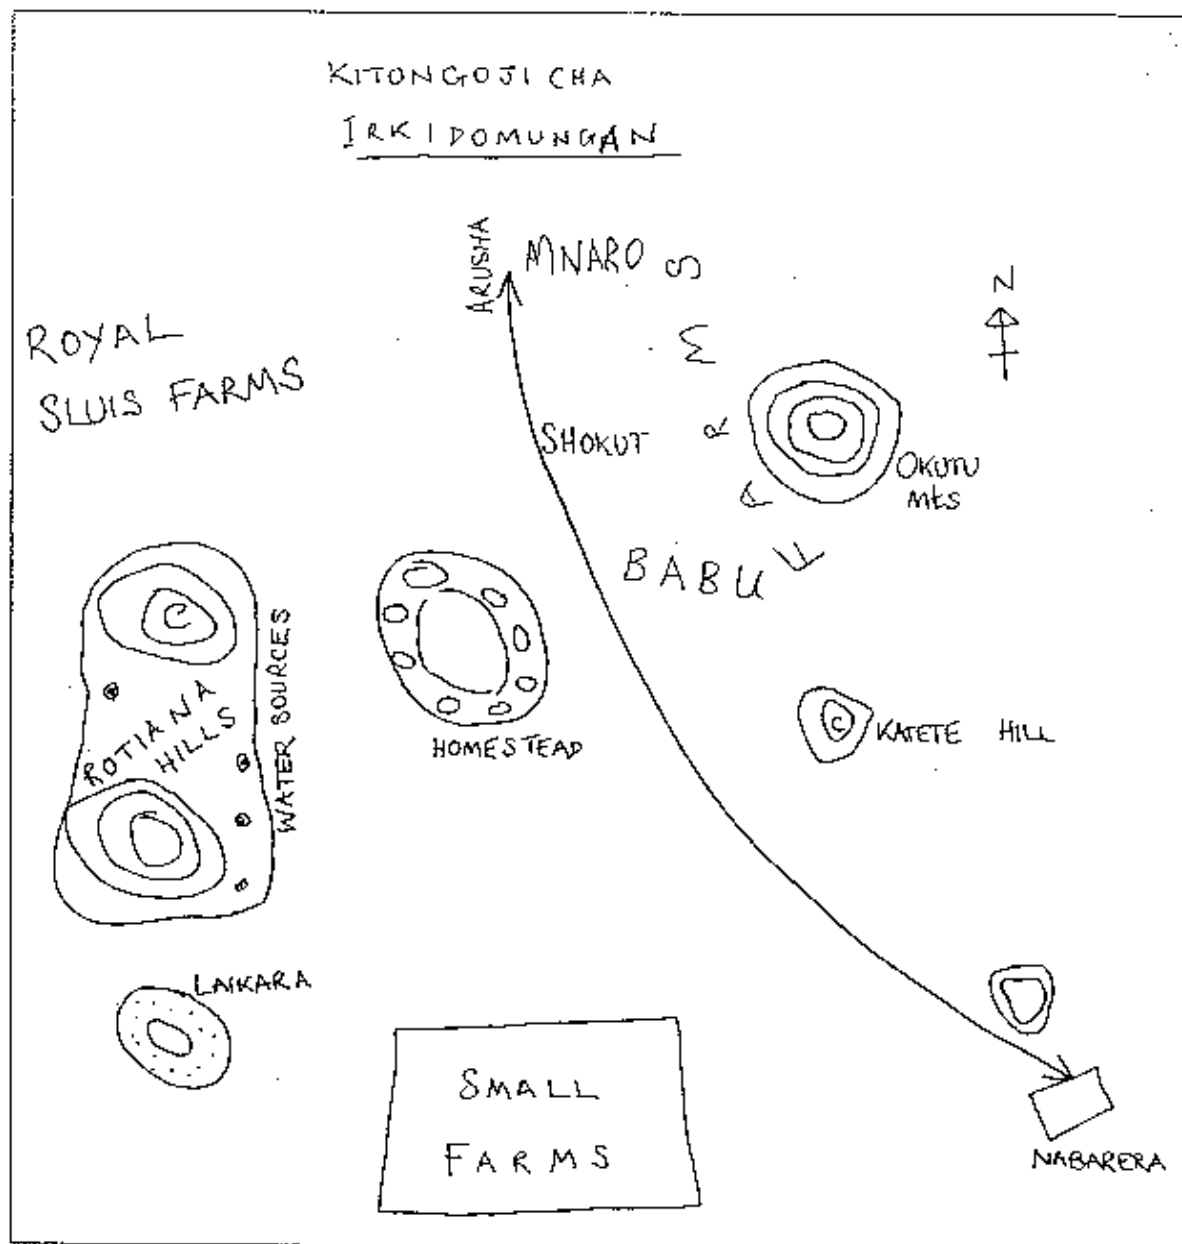 KITONGOJI CHA
IRKIDOMUNGAN
ARUSHA
MNARO
N
ROYAL
SLUIS FARMS
SHOKUT
OKUTU
Mts
BABU
FARMS
ROTIANA
HILLS
WATER SOURCES
HOMESTEAD
KATETE HILL
LAIKARA
SMALL
FARMS
NABARERA